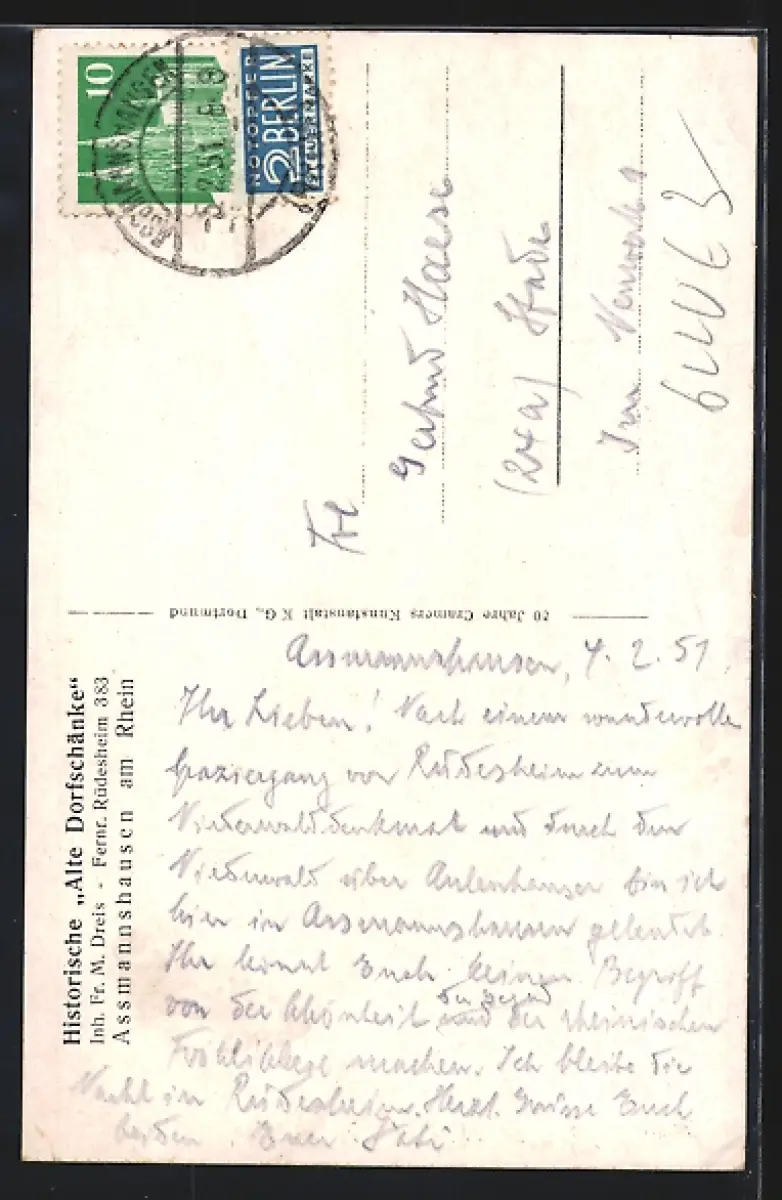 10
NOTOPFER
2 BERLIN
STEUERMARKE
ASSMANNSHAUSEN
Gertrud Haese
(24a) Stade
Historische „Alte Dorfschänke“
Inh. Fr. M. Dreis - Fernr. Rüdesheim 383
Assmannshausen am Rhein
80 Jahre Cramers Kunstanstalt KG., Dortmund
Assmannshausen, 4.2.51
Ihr Lieben! Nach einem wundervollen
Spaziergang von Rüdesheim zum
Niederwalddenkmal und durch den
Niederwald über Aulenhausen bin ich
hier in Assmannshausen gelandet.
Ihr könnt Euch keinen Begriff
von der Schönheit der Gegend und der rheinischen
machen. Ich bleibe die
Nacht in Rüdesheim. Herzl. Grüsse Euch
beiden. Euer